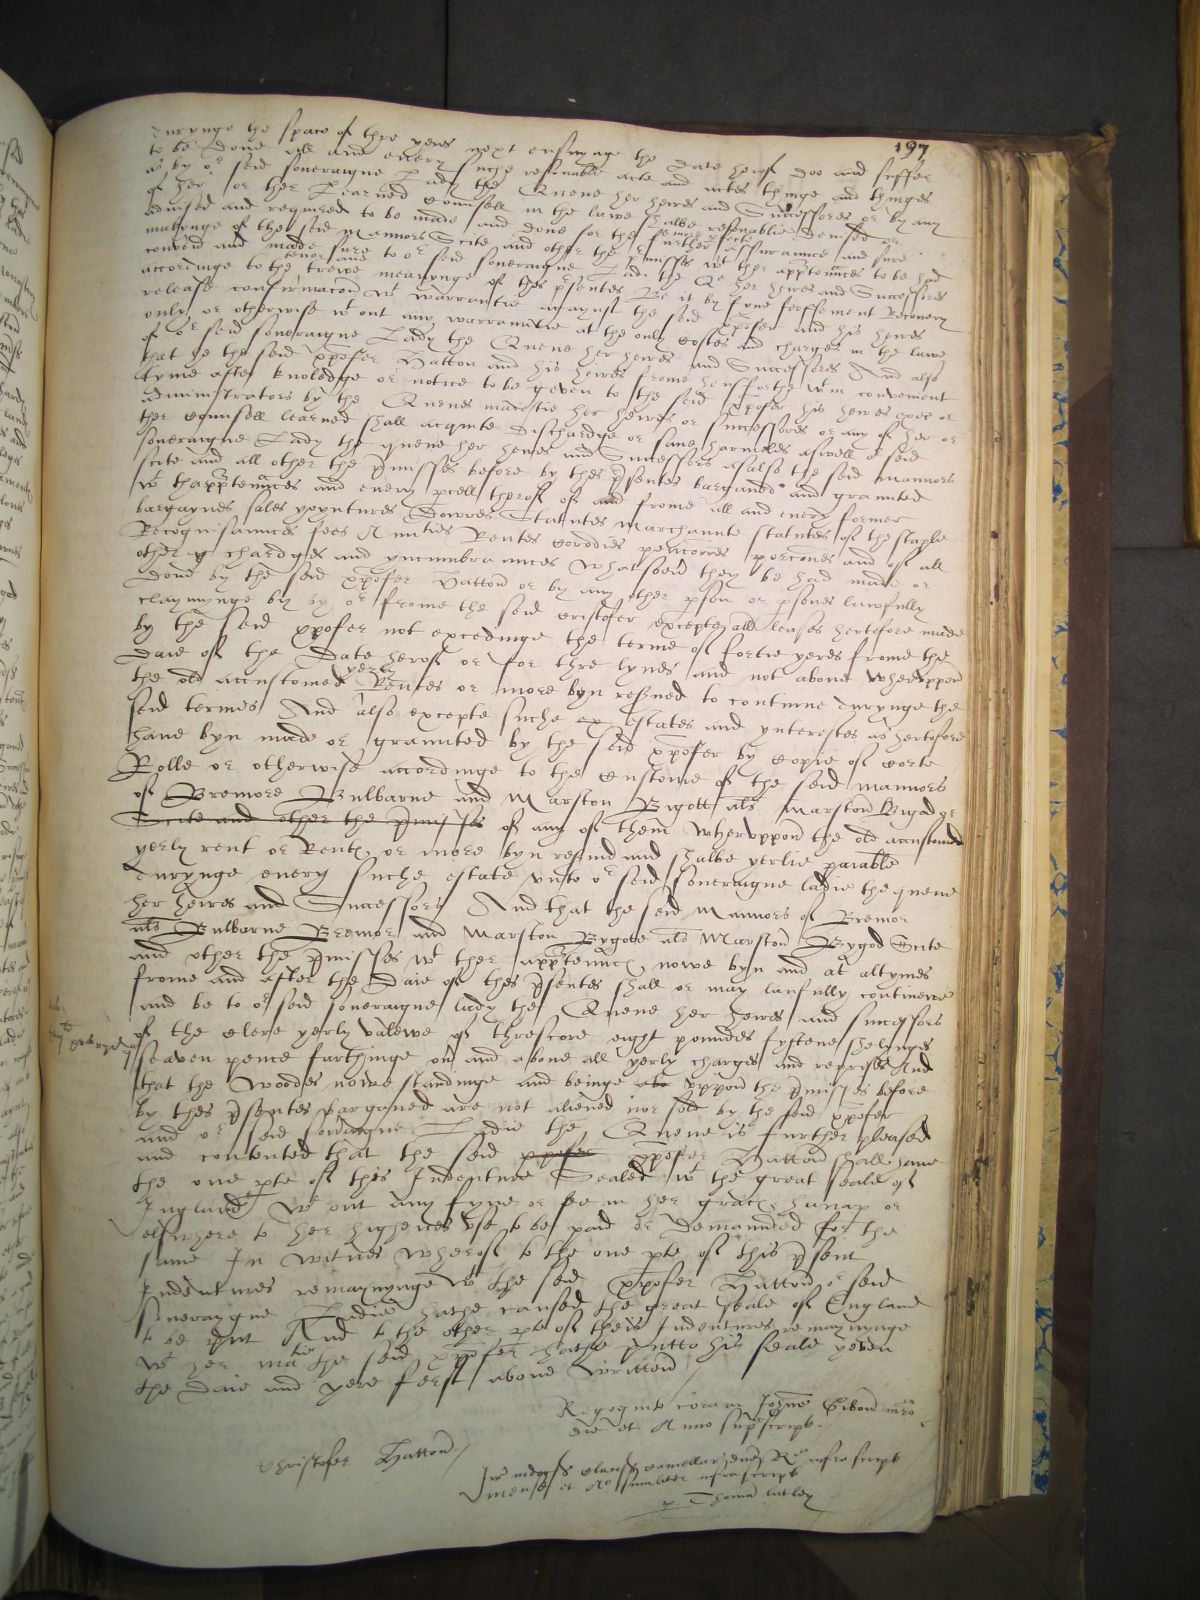 197
durynge the space of thre yeres next ensuynge the date herof doo and suffer
to be done all and every suche resonable acte and actes thinge and thinges
as by or seid soveraigne Lady the Quene her heires and Successors or by any
of her or ther Learned Counsell in the lawe shalbe resonablie devised or
advised and required to be made and done for the further assuraunce and sure
makynge of the seid Mannors Scite and other the pmisses wt ther apptennces to be had
conveid and made sure to or seid soveraigne Ladi the Q her heires and Successors
accordinge to the tenor and trewe meanynge of thes psentes Be it by fyne feoffement Recovery
release confirmacon wt warrantie agaynst the seid xpofer and his heires
only or otherwise wtout any warrauntie at the only costes and charges in the lawe
of or seid soveraigne Lady the Quene her heires and Successors And also
that he the seid xpofer Hatton and his heires frome hensforthe wtin convenient
tyme after knoledge or notice to be geven to the seid xpofer his heires exec or
administrators by the Quenes maiestie her heires or successores or any of her or
ther counsell learned shall acquite dischardge or save harmeles aswell or seid
soveraigne Lady the quene her heires and Successors as also the seid mannors
scite and all other the pmisses before by thes psentes barganed and graunted
wt thapptennces and every pcell therof of and frome all and every former
bargaynes sales yoyntures Dowres Statutes marchannte statutes of the staple
Recognisaunces fees Annuities Rentes corrodies pencions porcones and of all
other chardges and yncumbraunces whatsoevr they be had made or
done by the seid xpofer Hatton or by any other pson or psones lawfully
claymynge by or frome the seid cristofer excepte all leases hertofore made
by the seid xpofer not excedinge the terme of fortie yeres frome the
daie of the date herof or for thre lyves and not above wheruppon
the old accustomed yerly Rentes or more byn resved to contynue durynge the
seid termes And also excepte suche estates and ynterestes as hertofore
have byn made or graunted by the seid xpofer by copie of corte
Rolle or otherwise accordinge to the custome of the seid mannors
of Bremore Bulbarne and Marston Bigott als Marston Bigod or
Scite and other the pmisses of any of them wheruppon the old accustomed
yerly rent or Rentes or more byn resvid and shalbe yerlie paiable
durynge every suche estate unto or seid soveraigne ladie the quene
her heires and Successors And that the seid Mannors of Bremor
als Bulbarne Bremor and Marston Bygote als Marston Bygod Scite
and other the pmisses wt ther apptennces nowe byn and at altymes
frome and after the daie of thes psentes shall or may laufully contynewe
and be to or seid soveraigne lady the Quene her heires and successors
of the clere yerly valewe of threscore eight poundes fyftene shelynges
seaven pence farthinge ov and above all yerly charges and reprises And
that the Woodes nowe standinge and beinge uppon the pmisses before
by thes psentes bargened are not aliened nor sold by the seid xpofer
and or seid soveraigne Ladie the Quene is further pleased
and contented that the seid xpofer xpofer Hatton shall have
the one pte of this Indenture Sealed wt the great seale of
England wtout any fyne or fee in her graces hanap or
elswhere to her highenes use to be paid or demaunded for the
same In witnes wherof to the one pte of this psent
Indentures remaynynge wt the seid xpofer Hatton or seid
Soveraigne Ladie hathe caused the great seale of England
to be put And to the other pte of theis Indentures remaynynge
wt her matie the seid xpofer hathe putto his seale yeven
the daie and yere ferst above written
Recognit coram Johne Gibon mro
die et Anno supscript
Christofer Hatton
Irr in dorso clausz cancellar dne Re infrascript
mense et Ao similiter infrascript
p Thomam